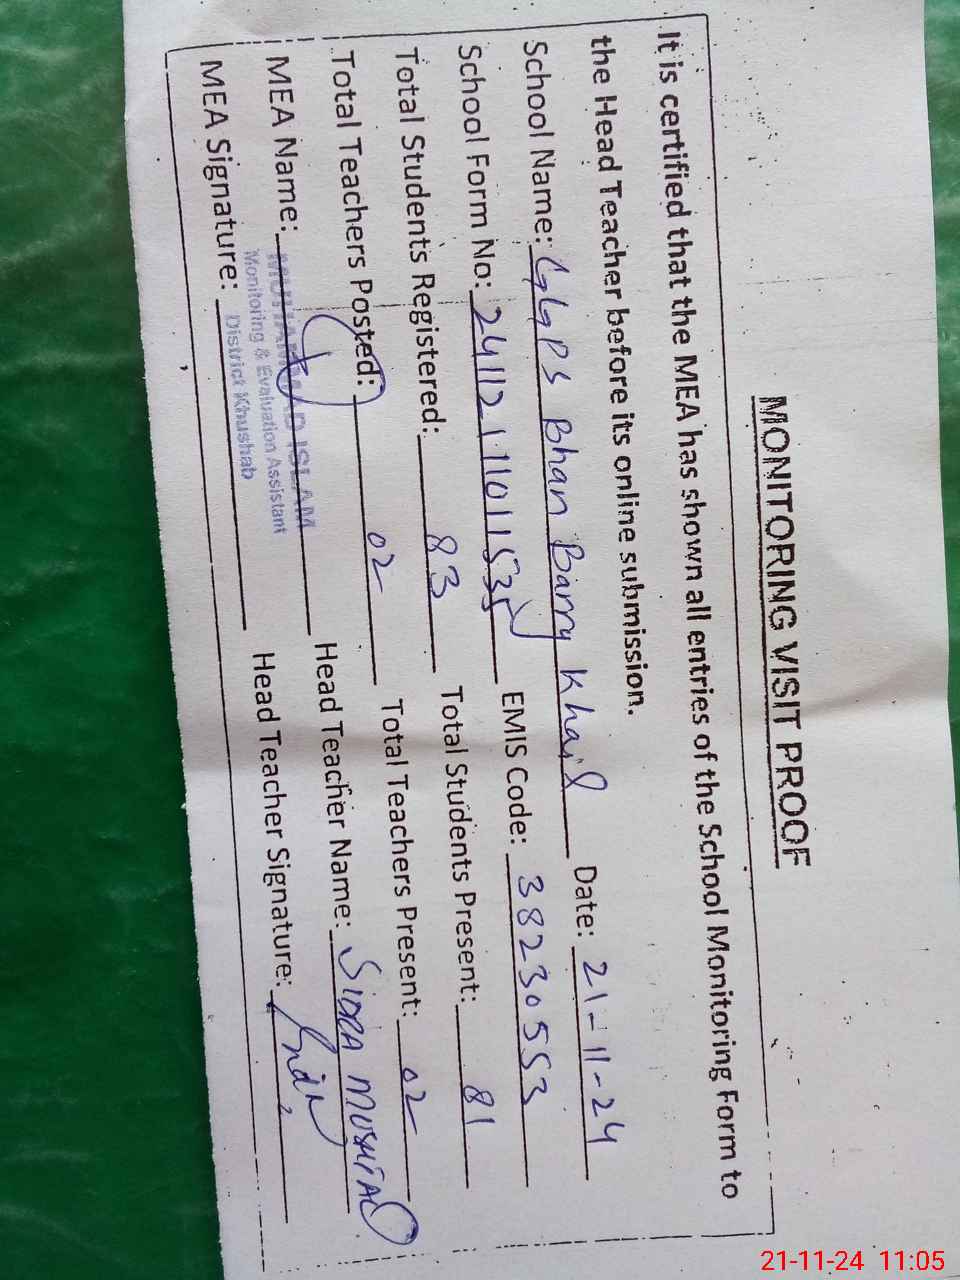 MONITORING VISIT PROOF
It is certified that the MEA has shown all entries of the School Monitoring Form to
the Head Teacher before its online submission.
School Name: GGPS Bhan Barry Khail Date: 21-11-24
School Form No: EMIS Code: 38230553
Total Students Registered: 83 Total Students Present: 81
Total Teachers Posted: 02 Total Teachers Present: 02
MEA Name: MUHAMMAD ISLAM Head Teacher Name: SIDRA MUSHTAQ
Monitoring & Evaluation Assistant
District Khushab
MEA Signature: Head Teacher Signature:
21-11-24 11:05